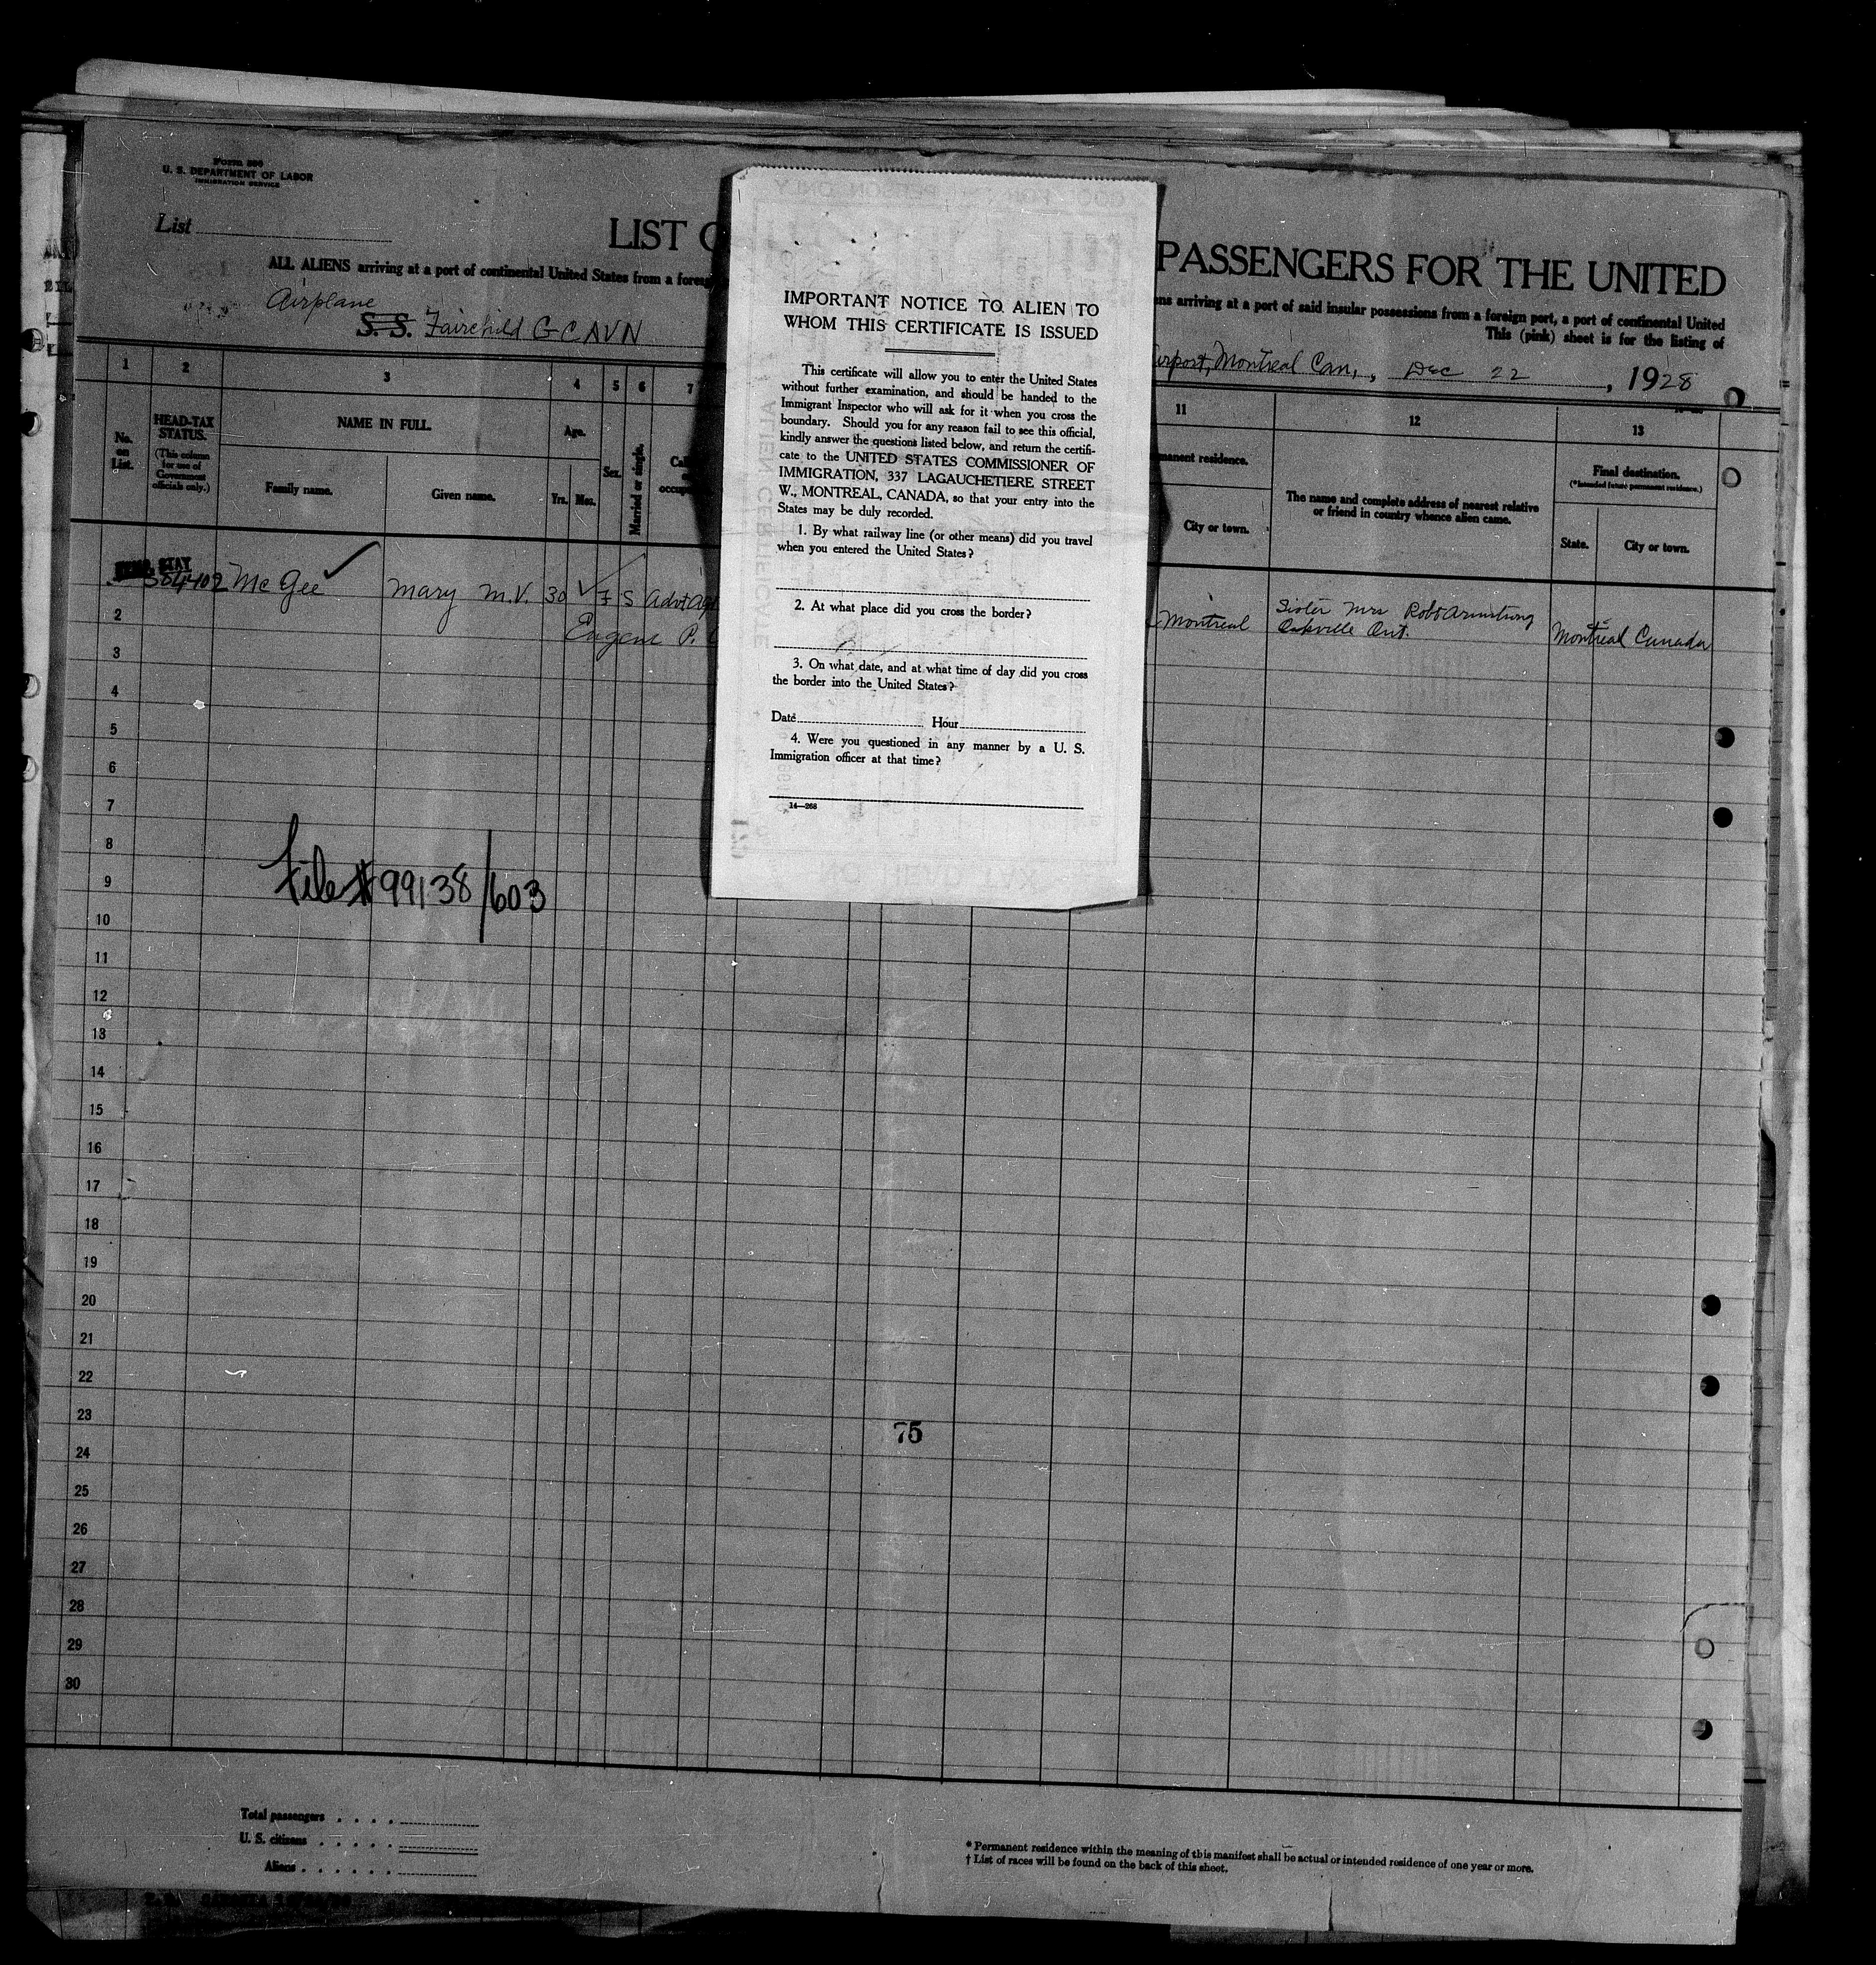 Form 680
U. S. DEPARTMENT OF LABOR
IMMIGRATION SERVICE
List
LIST
PASSENGERS FOR THE UNITED
ALL ALIENS arriving at a port of continental United States from a foreig
ens arriving at a port of said insular possessions from a foreign port, a port of continental United
This (pink) sheet is for the listing of
Airplane
S. S. Fairchild G-CAVN
irport, Montreal Can, , Dec 22 , 1928
1 2 3 4 5 6 7 11 12 13
No. on List.
HEAD-TAX STATUS.
(This column for use of Government officials only.)
NAME IN FULL.
Family name.
Given name.
Age.
Yrs. Mos.
Sex.
Married or single.
manent residence.
City or town.
The name and complete address of nearest relative
or friend in country whence alien came.
Final destination.
(*Intended future permanent residence.)
State.
City or town.
STAY
McGee Mary M.V. 30 F S Advt Ag
Eugene P.
Montreal
Sister Mrs Robt Armstrong
Oakville Ont.
Montreal Canada
2
3
4
5
6
7
8
9
10
11
12
13
14
15
16
17
18
19
20
21
22
23
24
25
26
27
28
29
30
File #99138/603
75
IMPORTANT NOTICE TO ALIEN TO
WHOM THIS CERTIFICATE IS ISSUED
This certificate will allow you to enter the United States
without further examination, and should be handed to the
Immigrant Inspector who will ask for it when you cross the
boundary. Should you for any reason fail to see this official,
kindly answer the questions listed below, and return the certifi-
cate to the UNITED STATES COMMISSIONER OF
IMMIGRATION, 337 LAGAUCHETIERE STREET
W., MONTREAL, CANADA, so that your entry into the
States may be duly recorded.
1. By what railway line (or other means) did you travel
when you entered the United States?
2. At what place did you cross the border?
3. On what date, and at what time of day did you cross
the border into the United States?
Date Hour
4. Were you questioned in any manner by a U. S.
Immigration officer at that time?
14—268
Total passengers
U. S. citizens
Aliens
* Permanent residence within the meaning of this manifest shall be actual or intended residence of one year or more.
† List of races will be found on the back of this sheet.